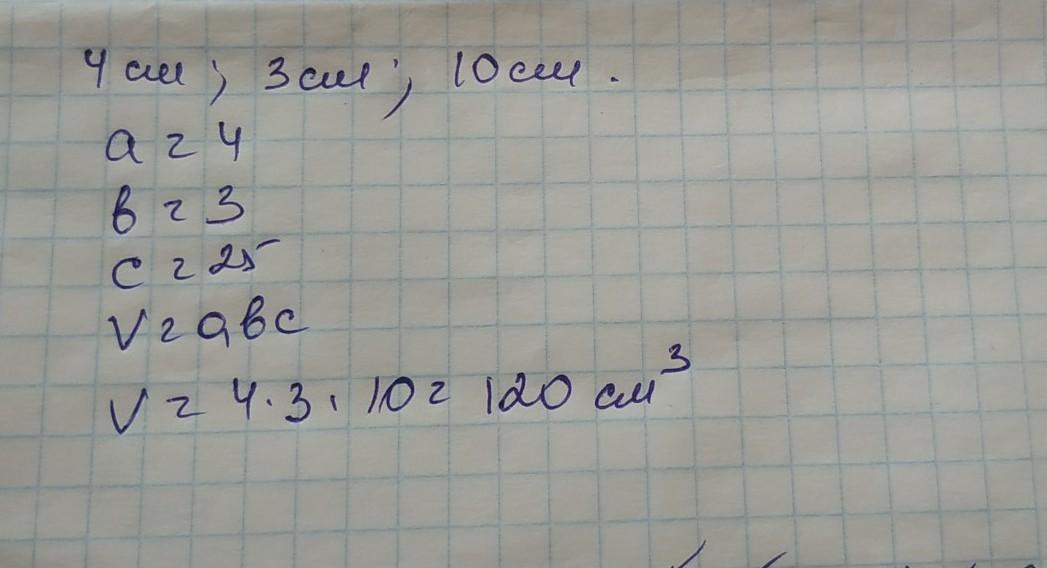 4 см; 3 см; 10 см.
a = 4
в = 3
c = 25
V = авс
V = 4·3·10 = 120 см³